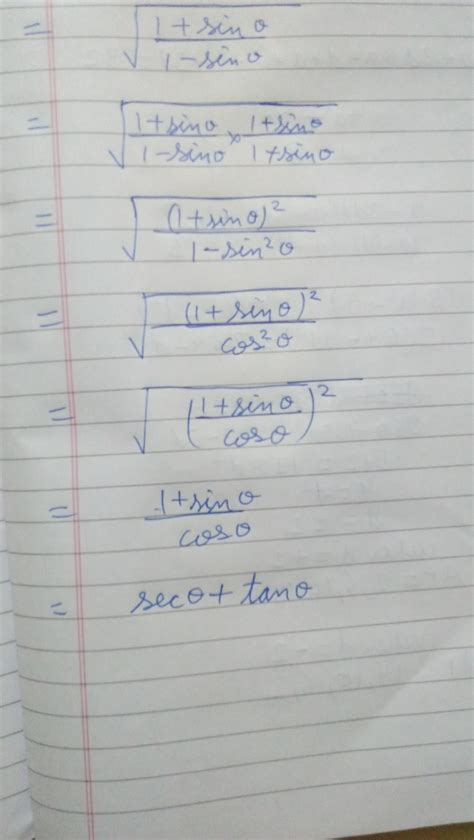 = √((1+sinθ)/(1-sinθ))
= √((1+sinθ)/(1-sinθ) × (1+sinθ)/(1+sinθ))
= √((1+sinθ)²/(1-sin²θ))
= √((1+sinθ)²/cos²θ)
= √(((1+sinθ)/cosθ)²)
= (1+sinθ)/cosθ
= secθ + tanθ